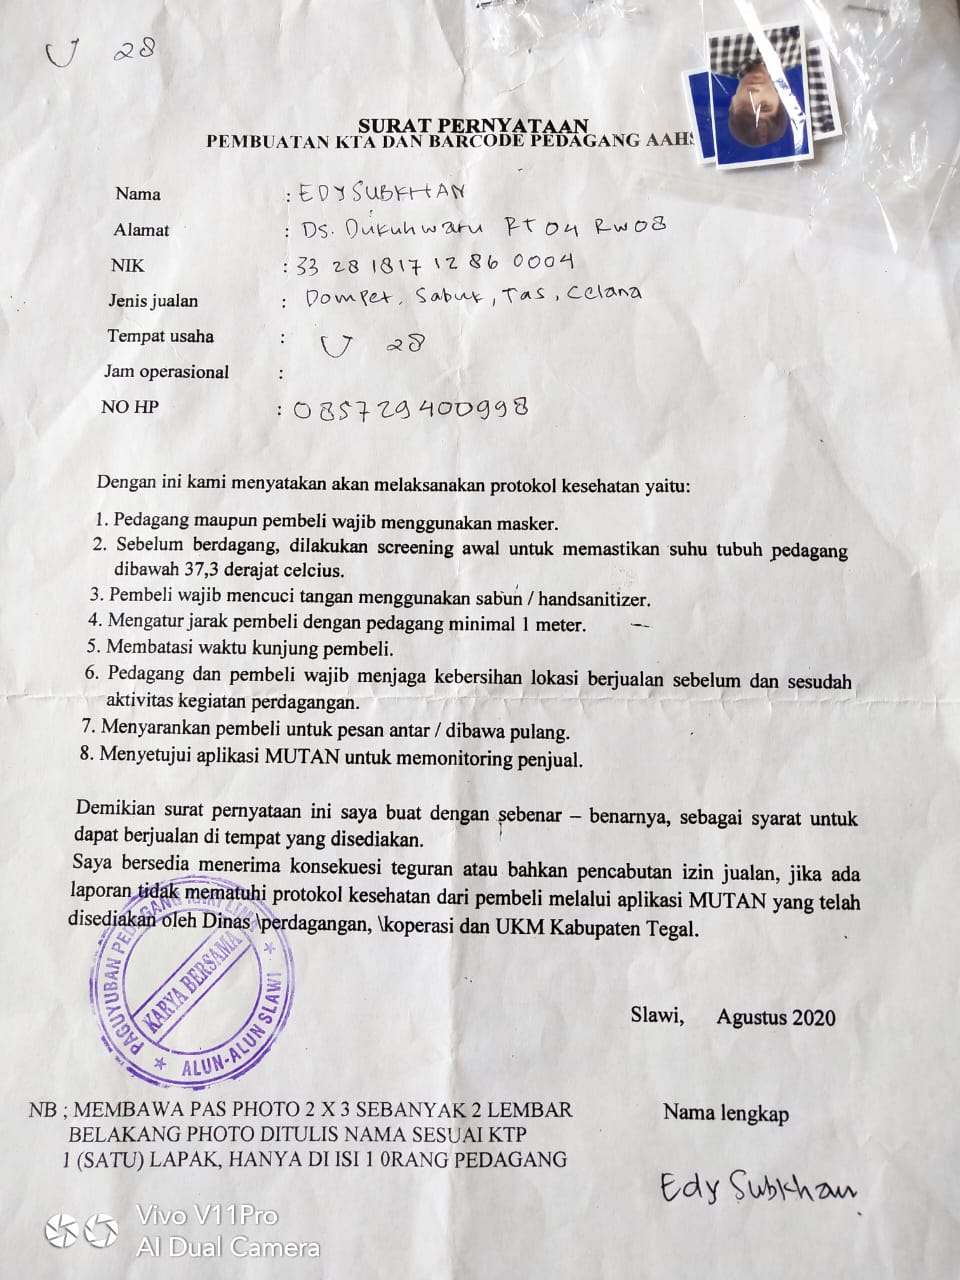 U 28
SURAT PERNYATAAN
PEMBUATAN KTA DAN BARCODE PEDAGANG AAHS
Nama : EDY SUBKHAN
Alamat : DS. Dukuhwaru RT 04 RW 08
NIK : 33 28 1817 12 86 0004
Jenis jualan : Dompet, Sabuk, Tas, Celana
Tempat usaha : U 28
Jam operasional :
NO HP : 085729400998
Dengan ini kami menyatakan akan melaksanakan protokol kesehatan yaitu:
1. Pedagang maupun pembeli wajib menggunakan masker.
2. Sebelum berdagang, dilakukan screening awal untuk memastikan suhu tubuh pedagang
dibawah 37,3 derajat celcius.
3. Pembeli wajib mencuci tangan menggunakan sabun / handsanitizer.
4. Mengatur jarak pembeli dengan pedagang minimal 1 meter.
5. Membatasi waktu kunjung pembeli.
6. Pedagang dan pembeli wajib menjaga kebersihan lokasi berjualan sebelum dan sesudah
aktivitas kegiatan perdagangan.
7. Menyarankan pembeli untuk pesan antar / dibawa pulang.
8. Menyetujui aplikasi MUTAN untuk memonitoring penjual.
Demikian surat pernyataan ini saya buat dengan sebenar – benarnya, sebagai syarat untuk
dapat berjualan di tempat yang disediakan.
Saya bersedia menerima konsekuesi teguran atau bahkan pencabutan izin jualan, jika ada
laporan tidak mematuhi protokol kesehatan dari pembeli melalui aplikasi MUTAN yang telah
disediakan oleh Dinas \perdagangan, \koperasi dan UKM Kabupaten Tegal.
PAGUYUBAN PEDAGANG KAKI LIMA
KARYA BERSAMA
ALUN-ALUN SLAWI
Slawi, Agustus 2020
NB ; MEMBAWA PAS PHOTO 2 X 3 SEBANYAK 2 LEMBAR
BELAKANG PHOTO DITULIS NAMA SESUAI KTP
1 (SATU) LAPAK, HANYA DI ISI 1 0RANG PEDAGANG
Nama lengkap
Edy Subkhan
Vivo V11Pro
AI Dual Camera